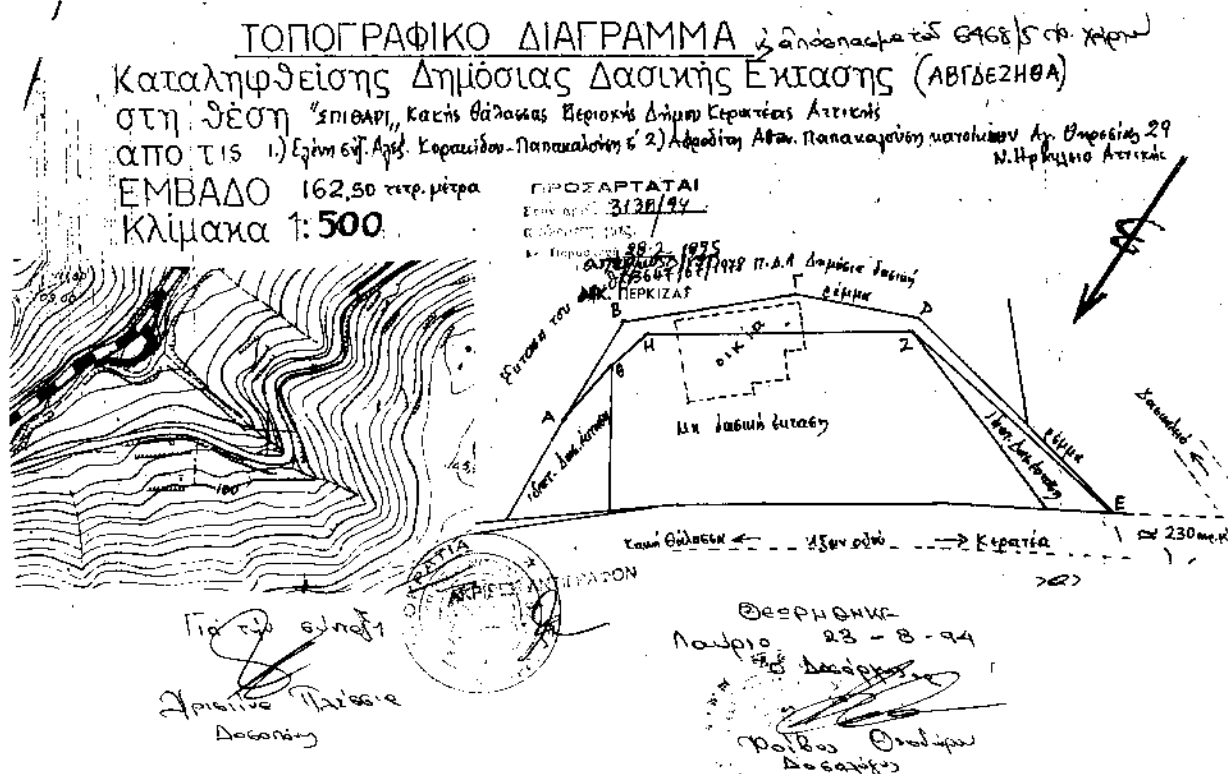 ΤΟΠΟΓΡΑΦΙΚΟ ΔΙΑΓΡΑΜΜΑ & απόσπασμα του 6468/5 φ. χάρτου
Καταληφθείσης Δημόσιας Δασικής Εκτασης (ΑΒΓΔΕΖΗΘΑ)
στη θέση "ΣΠΙΘΑΡΙ,, Κακής Θάλασσας Περιοχής Δήμου Κερατέας Αττικής
απο τις 1.) Ελένη συζ. Αλεξ. Κορακίδου-Παπακαλούση & 2) Αφροδίτη Αθαν. Παπακαλούση κατοίκων Αγ. 29
Ν. Ηράκλειο Αττικής
ΕΜΒΑΔΟ 162,50 τετρ. μέτρα
Κλίμακα 1:500
ΠΡΟΣΑΡΤΑΤΑΙ
3138/94
28-2-1995
ΠΕΡΚΙΖΑΣ
1978 Π.Δ.Α Δημόσια δασική
ρέμμα
Β
Γ
Δ
Η
Ζ
Θ
Α
Ε
οικία
Μη δασική έκταση
ρέμμα
100
Κακή Θάλασσα ← Αξων οδού → Κερατέα
≃ 230
ΑΚΡΙΒΕΣ ΑΝΤΙΓΡΑΦΟΝ
Για την σύνταξη
Δασοπόνος
ΘΕΩΡΗΘΗΚΕ
Λαύριο 23-8-94
Ο Δασάρχης
Φοίβος Θεοδώρου
Δασολόγος